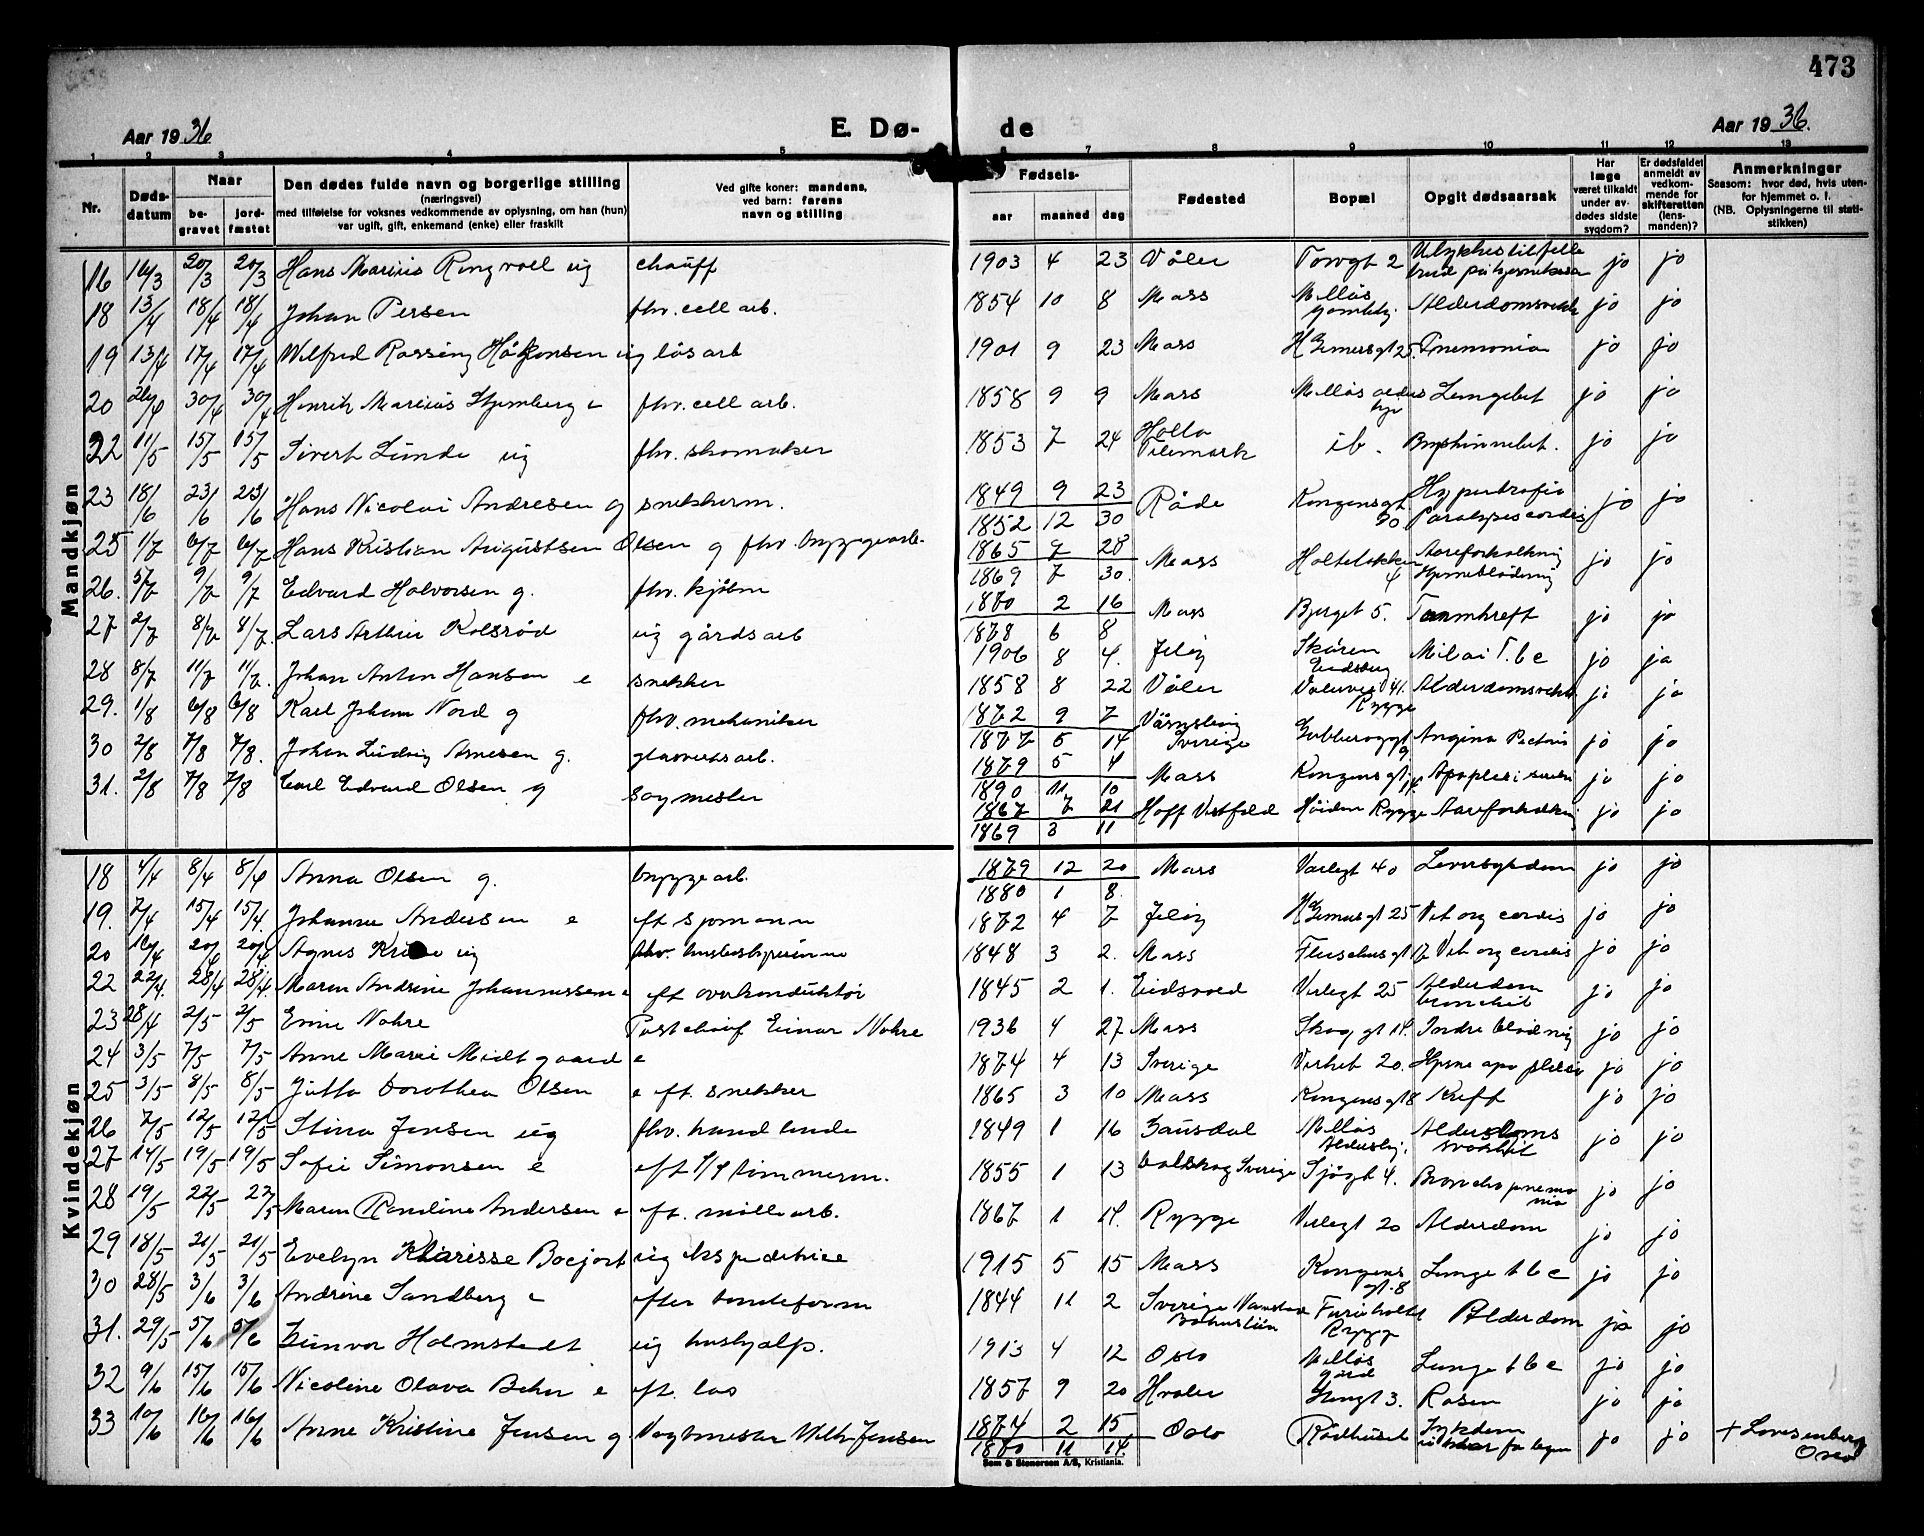 473
Aar 1936
E. Dø-
de
Aar 1936.
1 2 3 4 5 6 7 8 9 10 11 12 13
Nr.
Døds-
datum
Naar
be-
gravet
jord-
fæstet
Den dødes fulde navn og borgerlige stilling
(næringsvei)
med tilføielse for voksnes vedkommende av oplysning, om han (hun)
var ugift, gift, enkemand (enke) eller fraskilt
Ved gifte koner: mandens,
ved barn: farens
navn og stilling
Fødsels-
aar maaned dag
Fødested
Bopæl
Opgit dødsaarsak
Har
læge
været tilkaldt
under av-
dødes sidste
sygdom?
Er dødsfaldet
anmeldt av
vedkom-
mende for
skifteretten
(lens-
manden)?
Anmerkninger
Saasom: hvor død, hvis uten-
for hjemmet o. l.
(NB. Oplysningerne til stati-
stikken)
Mandkjøn
16 16/3 20/3 20/3 Hans Marius Ringvoll ug chauff 1903 4 23 Våler Torvgt 2 Ulykkestilfelle jo jo
18 13/4 18/4 18/4 Johan Persen fhv. cell arb. 1854 10 8 Moss Melløs Gamlehj. jo jo
19 13/4 17/4 17/4 Wilfred Rossing Håkonsen ug løsarb 1901 9 23 Moss H Gernersgt 25. Pnemonia jo jo
20 26/4 30/4 30/4 Henrik Marius Stjernberg e fhv. cell arb. 1858 9 9 Moss Melløs Lungebet jo jo
22 11/5 15/5 15/5 Sivert Lunde ug fhv. skomaker 1853 7 24 Holla Telemark ib. Brysthinnebet. jo jo
23 18/6 23/6 23/6 Hans Nicolai Andresen g snekkerm. 1849 9 23
1852 12 30 Råde Kongensgt Hypertrofia Paralyses cordis jo jo
25 1/7 6/7 6/7 Hans Kristian Augustsen Olsen g fhv. bryggearb. 1865 9 28
1869 7 30. Moss 4 Aareforkalkning Hjerneblødning jo jo
26. 5/7 9/7 9/7 Edvard Halvorsen g. fhv. kjøbm 1870 2 16
1878 6 8 Moss Bjerget 5. Tarmkreft jo jo
27 2/7 8/7 8/7. Lars Arthur Kolsrød ug gårdsarb 1906 8 4. Jeløy Skåren Eidsberg T.b c jo ja
28 8/7 11/7 11/7. Johan Anton Hansen e snekker 1858 8 22 Våler Rygge Alderdomssvekk jo ja
29. 1/8 6/8 6/8 Karl Johan Nord g fhv. mekaniker 1872 9 7
1877 5 14 Sverige Angina Pectoris jo jo
30 2/8 7/8 7/8. Johan Ludvig Arnesen g. glassverksarb. 1879 5 4
1890 11 10 Moss Kongensgt. jo jo
31. 2/8 7/8 7/8 Carl Edvard Olsen g sagmester 1867 7 21
1869 3 11 Hoff Vestfold Høiden Rygge Aareforkalkning jo jo
Kvindekjøn
18 4/4 8/4 8/4 Anna Olsen g. bryggearb. 1879 12 20
1880 1 8. Moss Varlegt 40 Leversykdom jo jo
19. 7/4 15/4 15/4. Johanne Andersen e eft sjømann 1872 4 7 Jeløy H Gernersgt 25 Vit org cordis jo jo
20 16/4 20/4 20/4 Agnes ug fhv. husbestyrerinne 1848 3 2. Moss 17 Vit org cordis jo jo
22 22/4. 28/4 28/4. Maren Andrine Johannessen e eft overkonduktør 1845 2 1. Eidsvold Verlegt 25 Alderdom bronchit jo jo
23 28/4 2/5 2/5 Enne Nohre Postchauf Einar Nohre 1936 4 27 Moss Skoggt 14. Indre blødning jo jo
24 3/5 7/5 7/5 Anne Marie Midtgaard e 1874 4 13 Sverige 20. Hjerne apoplexi jo jo
25 3/5 8/5 8/5 Jutta Dorothea Olsen e eft. snekker 1865 3 10 Moss Kongensgt 8 Kreft jo jo
26 7/5 12/5 12/5 Stina Jensen ug fhv. handlende 1849 1 16 Gausdal Melløs Aldershj. Alderdoms svakhet jo jo
27 14/5 19/5 19/5 Sofie Simonsen e eft tømmerm. 1855 1 13 Sverige Sjøgt 4. Broncho pnemonia jo jo
28 19/5 22/5 22/5 Maren Karoline Andersen e eft. møllearb. 1867 1 14. Rygge Verlegt 20 Alderdom jo jo
29 18/5 21/5 21/5 Evelyn Klarisse Boejort ug ekspeditrice 1915 5 15 Moss Kongens gt. 8 Lunge t b c jo jo
30 28/5 3/6 3/6 Andrine Sandberg e efter tøndeform 1844 11 2 Sverige Bohuslän Rygge Alderdom jo jo
31. 29/5 5/6 5/6 Gunvor Holmstedt ug hushjælp. 1913 4 12 Oslo Melløs gård Lunge t b c jo jo
32 9/6 15/6 15/6 Nicoline Olava Behn e eft. los 1857 9 20 Hvaler 3. Rosen jo jo
33 10/6 16/6 16/6 Anne Kristine Jensen g Vagtmester Wilh Jensen 1874 2 15
1870 11 14. Oslo Rådhuset Sykdom jo jo + Lovisenberg Oslo
Sem & Stenersen A/S, Kristiania.